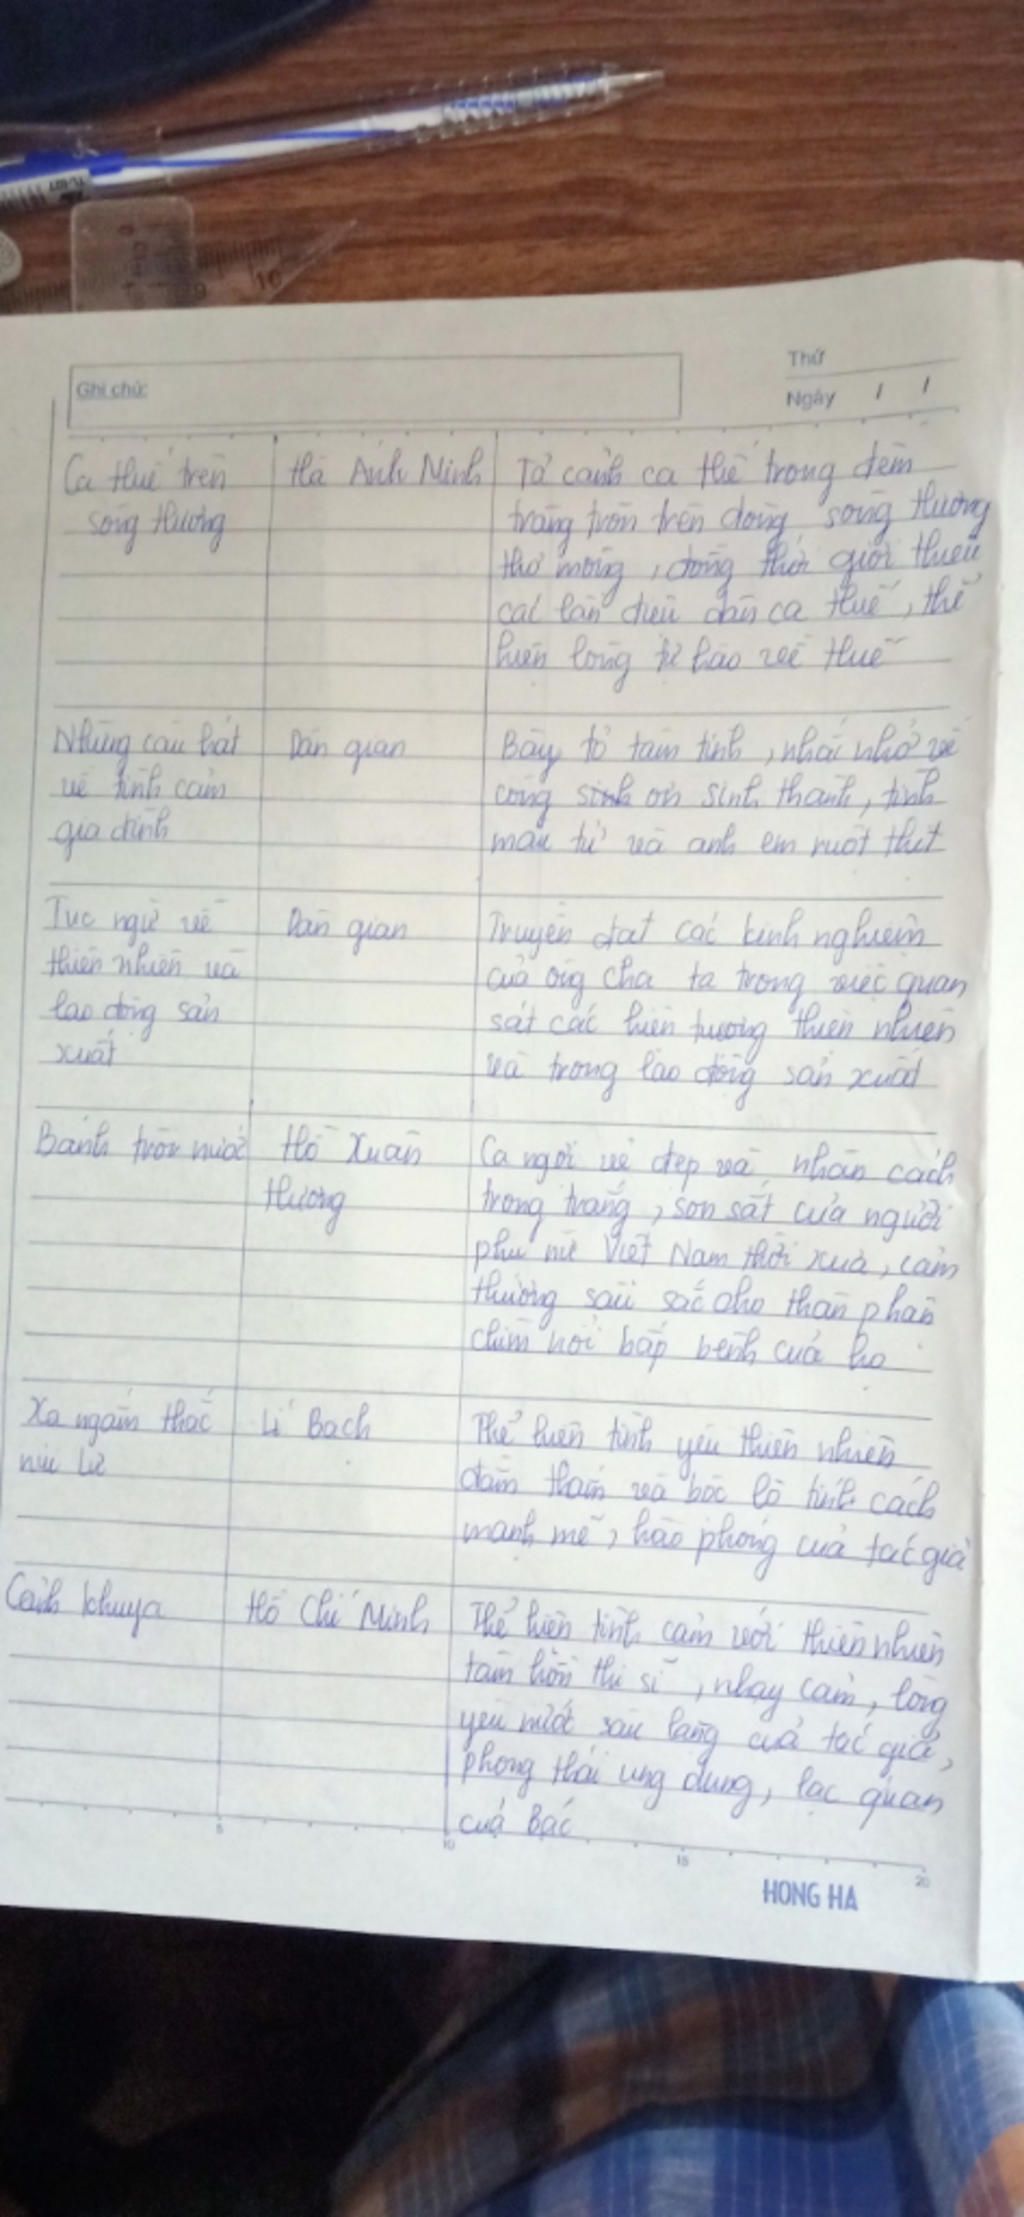 Ghi chú:
Thứ
Ngày / /
Ca Huế trên
sông Hương
Hà Ánh Minh
Tả cảnh ca Huế trong đêm
trăng tròn trên dòng sông Hương
thơ mộng, đồng thời giới thiệu
các làn điệu dân ca Huế, thể
hiện lòng tự hào về Huế
Những câu hát
về tình cảm
gia đình
Dân gian
Bày tỏ tâm tình, nhắc nhở về
công ơn sinh thành, tình
mẫu tử và anh em ruột thịt
Tục ngữ về
thiên nhiên và
lao động sản
xuất
Dân gian
Truyền đạt các kinh nghiệm
của ông cha ta trong việc quan
sát các hiện tượng thiên nhiên
và trong lao động sản xuất
Bánh trôi nước
Hồ Xuân
Hương
Ca ngợi vẻ đẹp và nhân cách
trong trắng, son sắt của người
phụ nữ Việt Nam thời xưa, cảm
thương sâu sắc cho thân phận
chìm nổi bấp bênh của họ
Xa ngắm thác
núi Lư
Lí Bạch
Thể hiện tình yêu thiên nhiên
đằm thắm và bộc lộ tính cách
mạnh mẽ, hào phóng của tác giả
Cảnh khuya
Hồ Chí Minh
Thể hiện tình cảm với thiên nhiên
tâm hồn thi sĩ, nhạy cảm, lòng
yêu nước sâu lắng của tác giả,
phong thái ung dung, lạc quan
của Bác
5 10 15 20
HONG HA